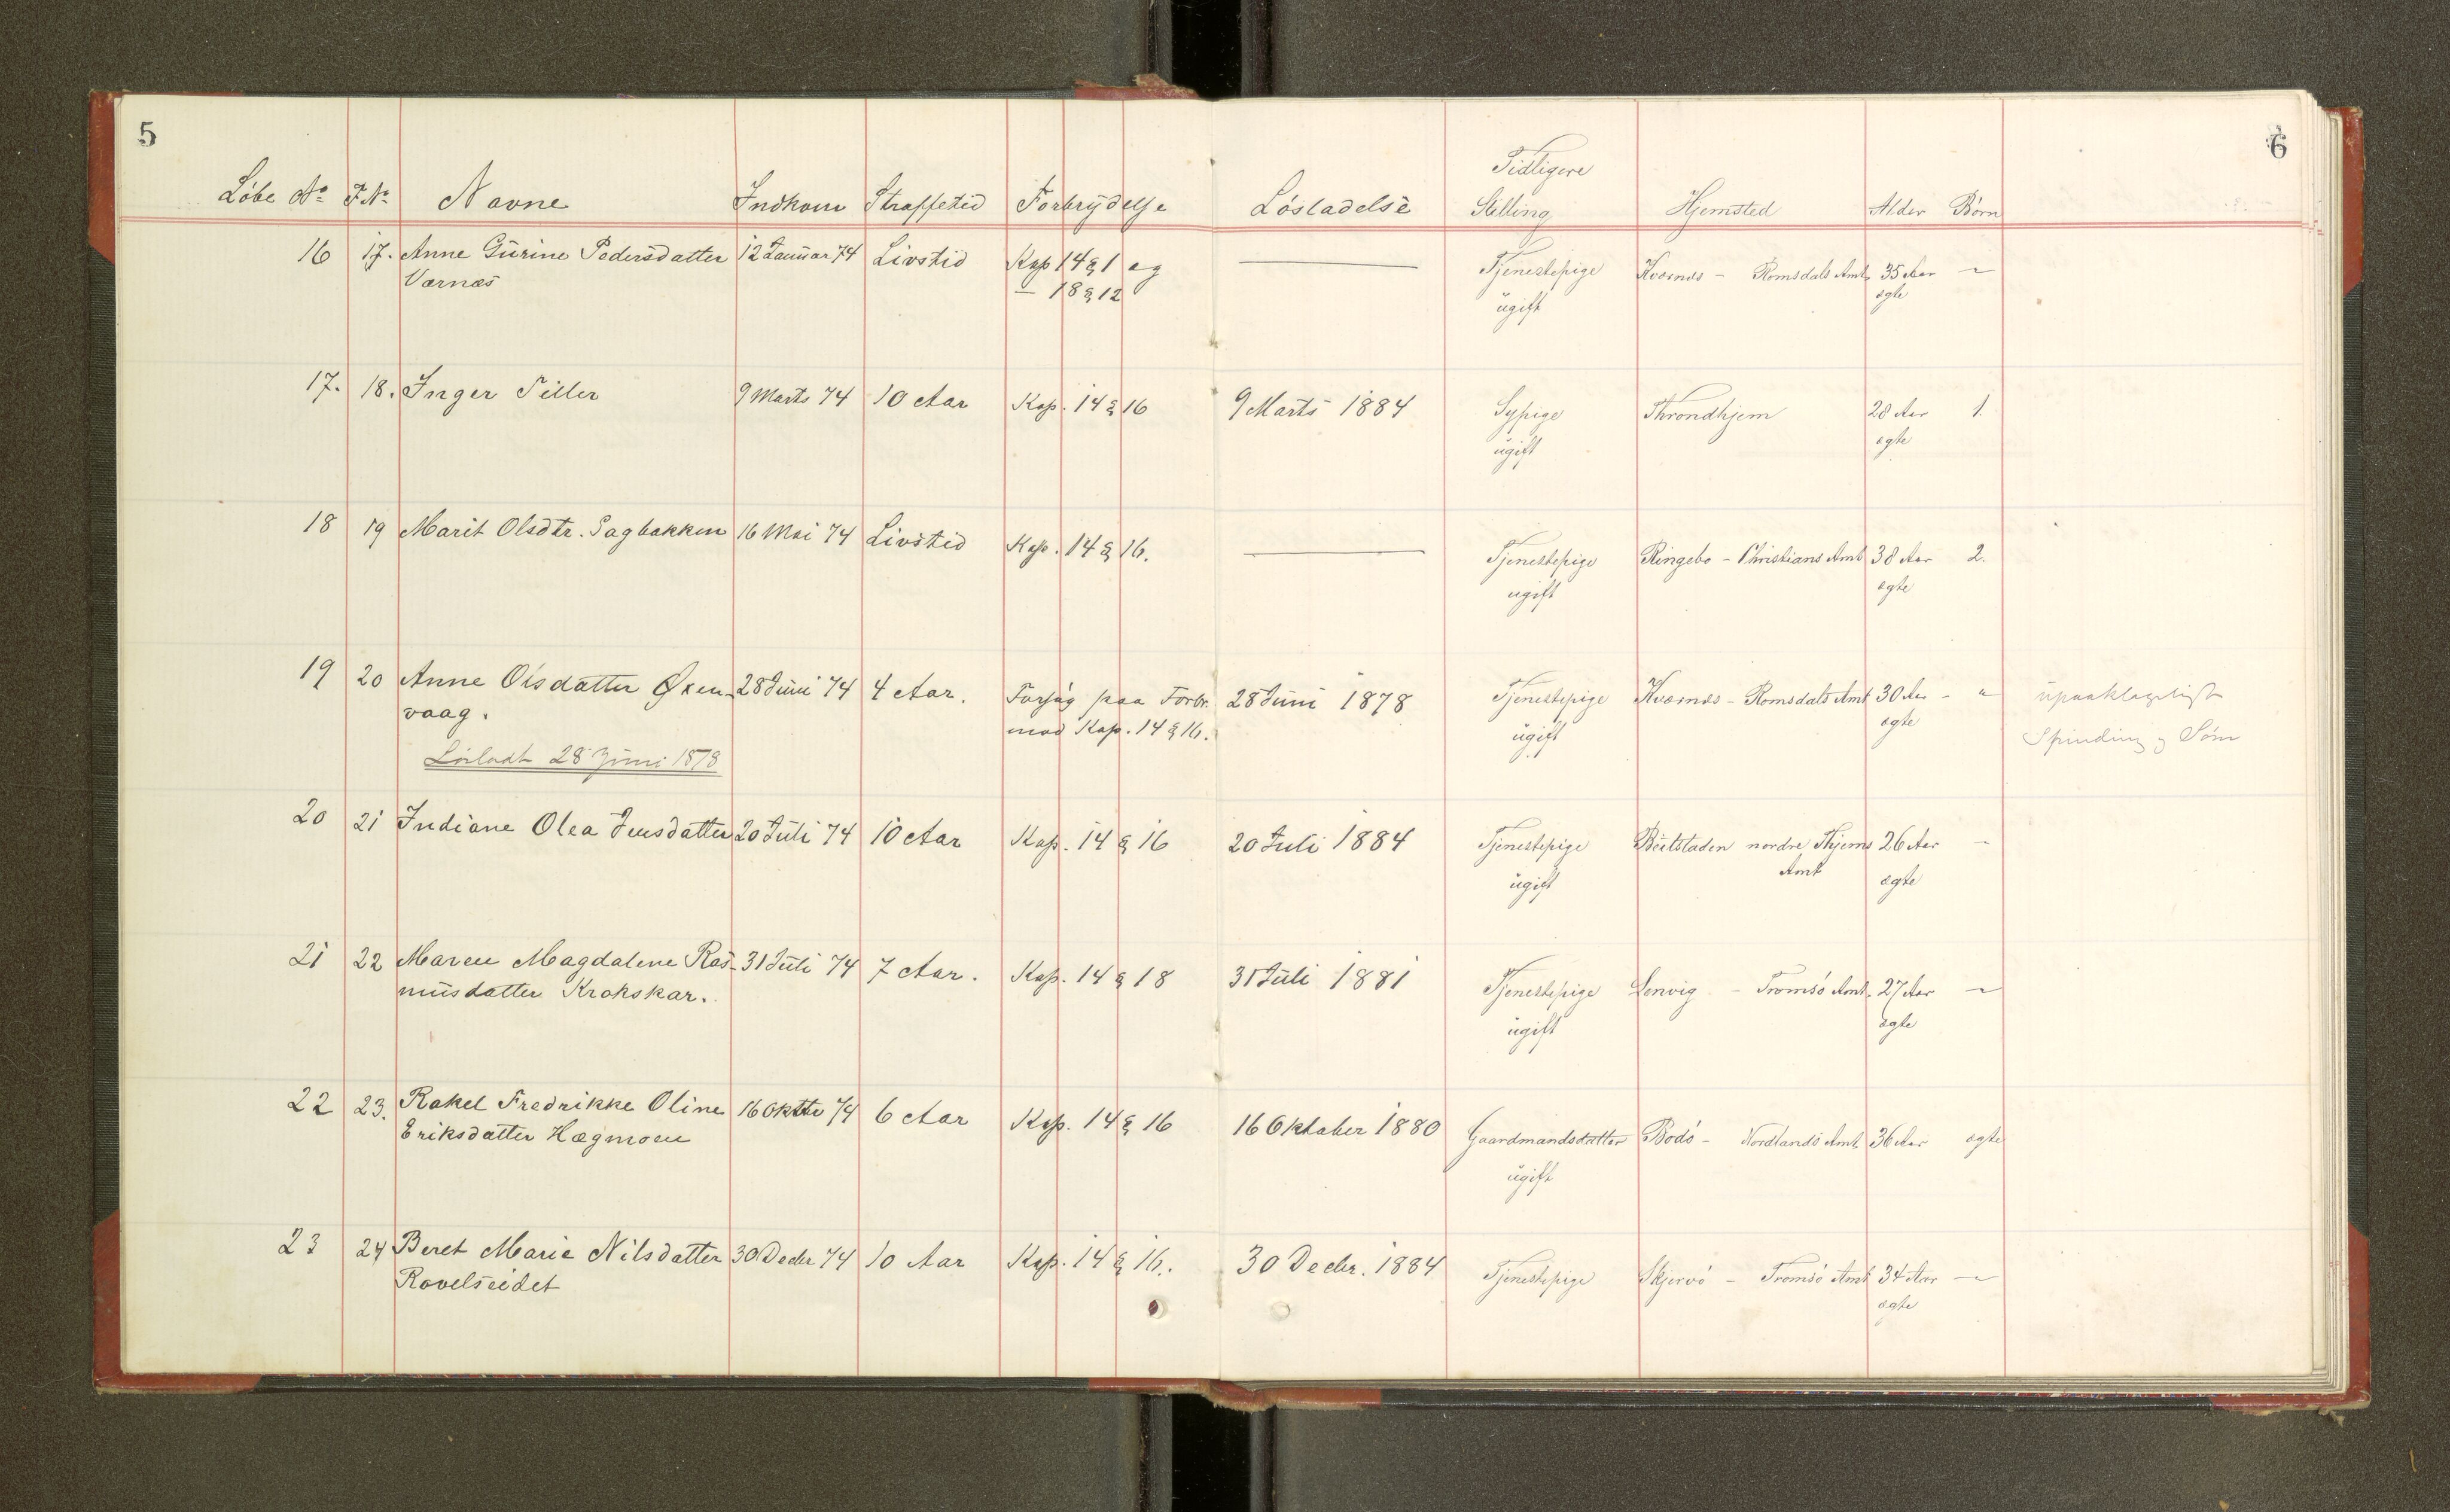 5
6
Løbe No F.No Navne Indkom Straffetid Forbrydelse Løsladelse Tidligere Stilling Hjemsted Alder Børn
16 17. Anne Gurine Pedersdatter 12 Januar 74 Livstid Kap 14 § 1 og — Tjenestepige Kvernæs - Romsdals Amt 35 Aar "
Værnæs — 18 § 12 ugift ægte
17. 18. Inger Tiller 9 Marts 74 10 Aar Kap. 14 § 16 9 Marts 1884 Sypige Throndhjem 28 Aar 1.
ugift ægte
18 19 Marit Olsdtr. Sagbakken 16 Mai 74 Livstid Kap. 14 § 16. — Tjenestepige Ringebo - Christians Amt 38 Aar 2.
ugift ægte
19 20 Anne Olsdatter Øxen- 28 Juni 74 4 Aar. Forsøg paa Forbr. 28 Juni 1878 Tjenestepige Kvernæs - Romsdals Amt 30 Aar - " upaaklageligt
vaag. mod Kap. 14 § 16. ugift ægte Spinding og Søm
Løsladt 28 Juni 1878
20 21 Indiane Olea Jensdatter 20 Juli 74 10 Aar Kap. 14 § 16 20 Juli 1884 Tjenestepige Beitstaden nordre Thjems 26 Aar -
ugift Amt ægte
21 22 Maren Magdalene Ras- 31 Juli 74 7 Aar. Kap. 14 § 18 31 Juli 1881 Tjenestepige Lenvig - Tromsø Amt. 27 Aar "
musdatter Krokskar. ugift ægte
22 23. Rakel Fredrikke Oline 16 Oktbr 74 6 Aar Kap. 14 § 16 16 Oktober 1880 Gaardmandsdatter Bodø - Nordlands Amt 36 Aar ægte
Eriksdatter Hægmoen ugift
23 24 Beret Marie Nilsdatter 30 Decbr 74 10 Aar Kap. 14 § 16. 30 Decbr. 1884 Tjenestepige Skjervø - Tromsø Amt 34 Aar "
Rovelseidet ægte